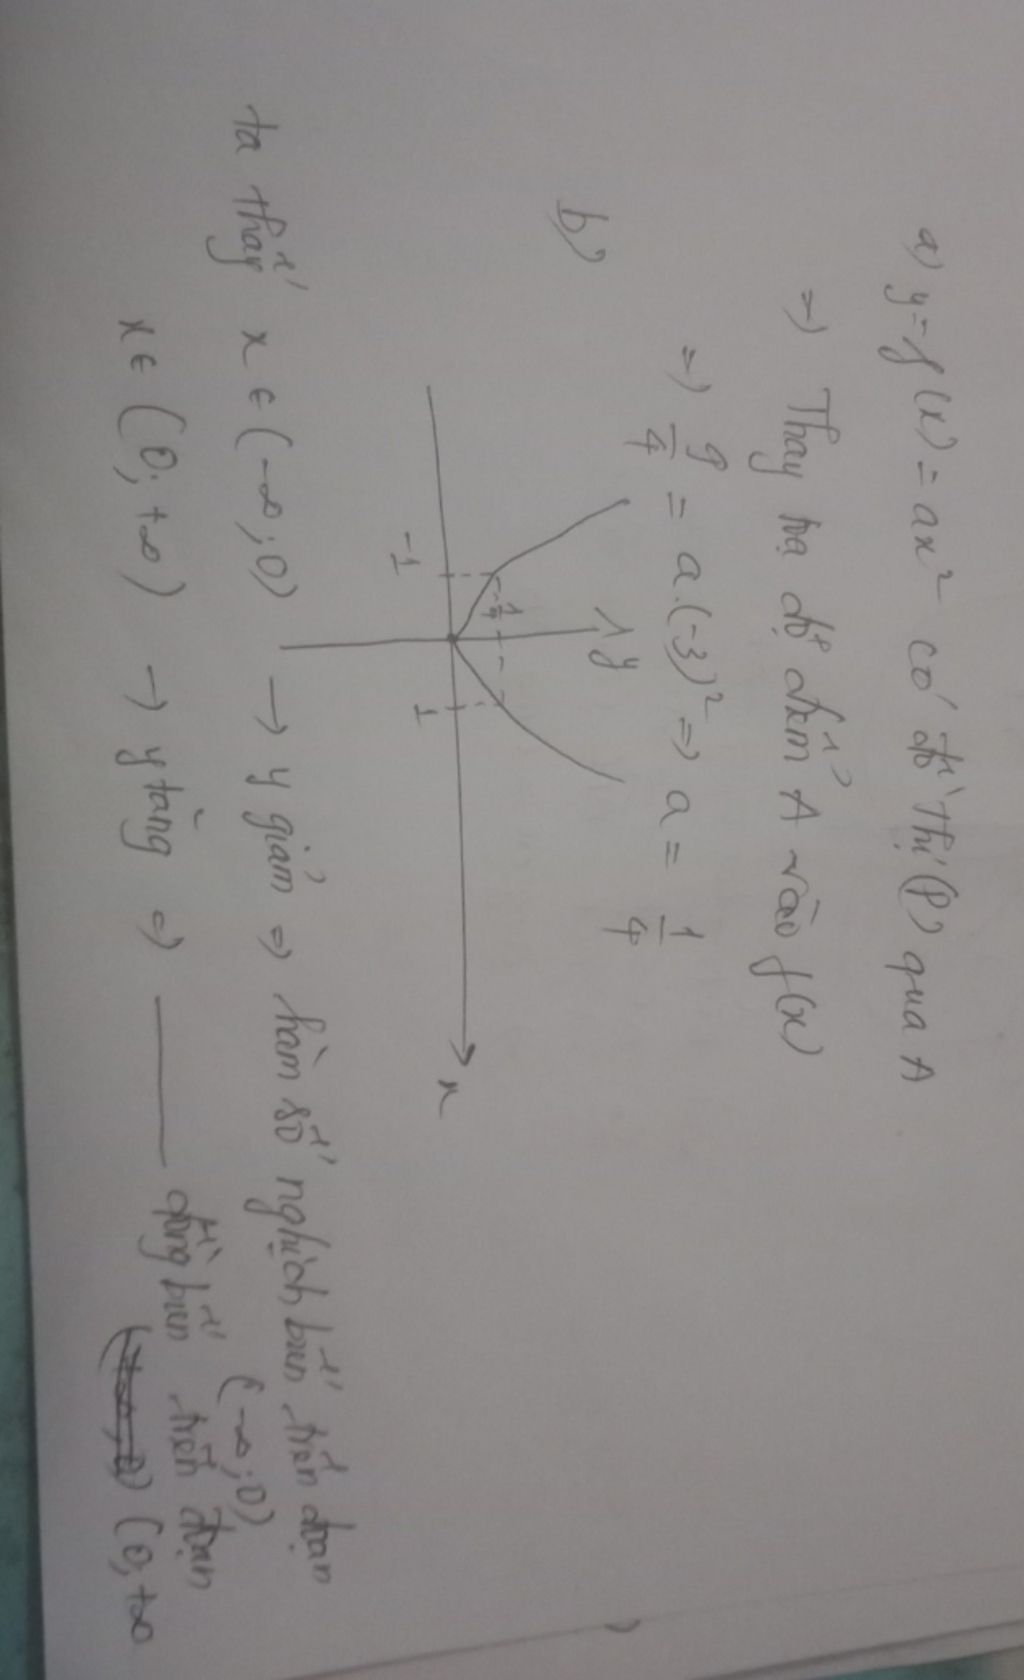 a) y = f(x) = ax² có đồ thị (P) qua A
=) Thay toạ độ điểm A vào f(x)
=) 9/4 = a.(-3)² => a = 1/4
b)
y
1/4
-1
1
x
ta thấy x ∈ (-∞; 0) → y giảm => hàm số nghịch biến trên đoạn
(-∞; 0)
x ∈ (0; +∞) → y tăng => ——— đồng biến trên đoạn
(0; +∞